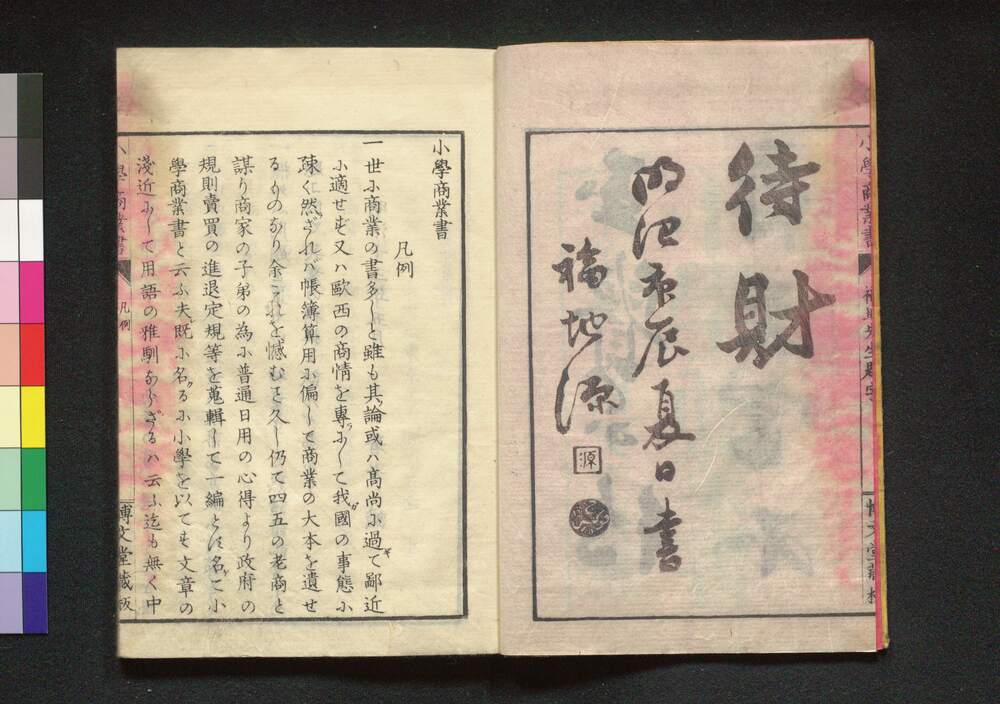 小學商業書
福地先生題字
博文堂藏板
待財
明治庚辰夏日書
福地源
源
小學商業書
凡例
一世ふ商業の書多しと雖も其論或ハ高尚ふ過ギて鄙近
ふ適せず又ハ歐西の商情を專ツふして我ガ國の事態ふ
疎く然ざれバ帳簿算用ふ偏して商業の大本を遺せ
るものなり余これを憾むこと久し仍て四五の老商と
謀り商家の子弟の為ふ普通日用の心得より政府の
規則賣買の進退定規等を蒐輯して一編とし名ケて小
學商業書と云ふ夫既ふ名ヅるふ小學を以てす文章の
淺近ふして用語の雅馴ならざるハ云ふ迄も無く中
小學商業書
凡例
博文堂藏板